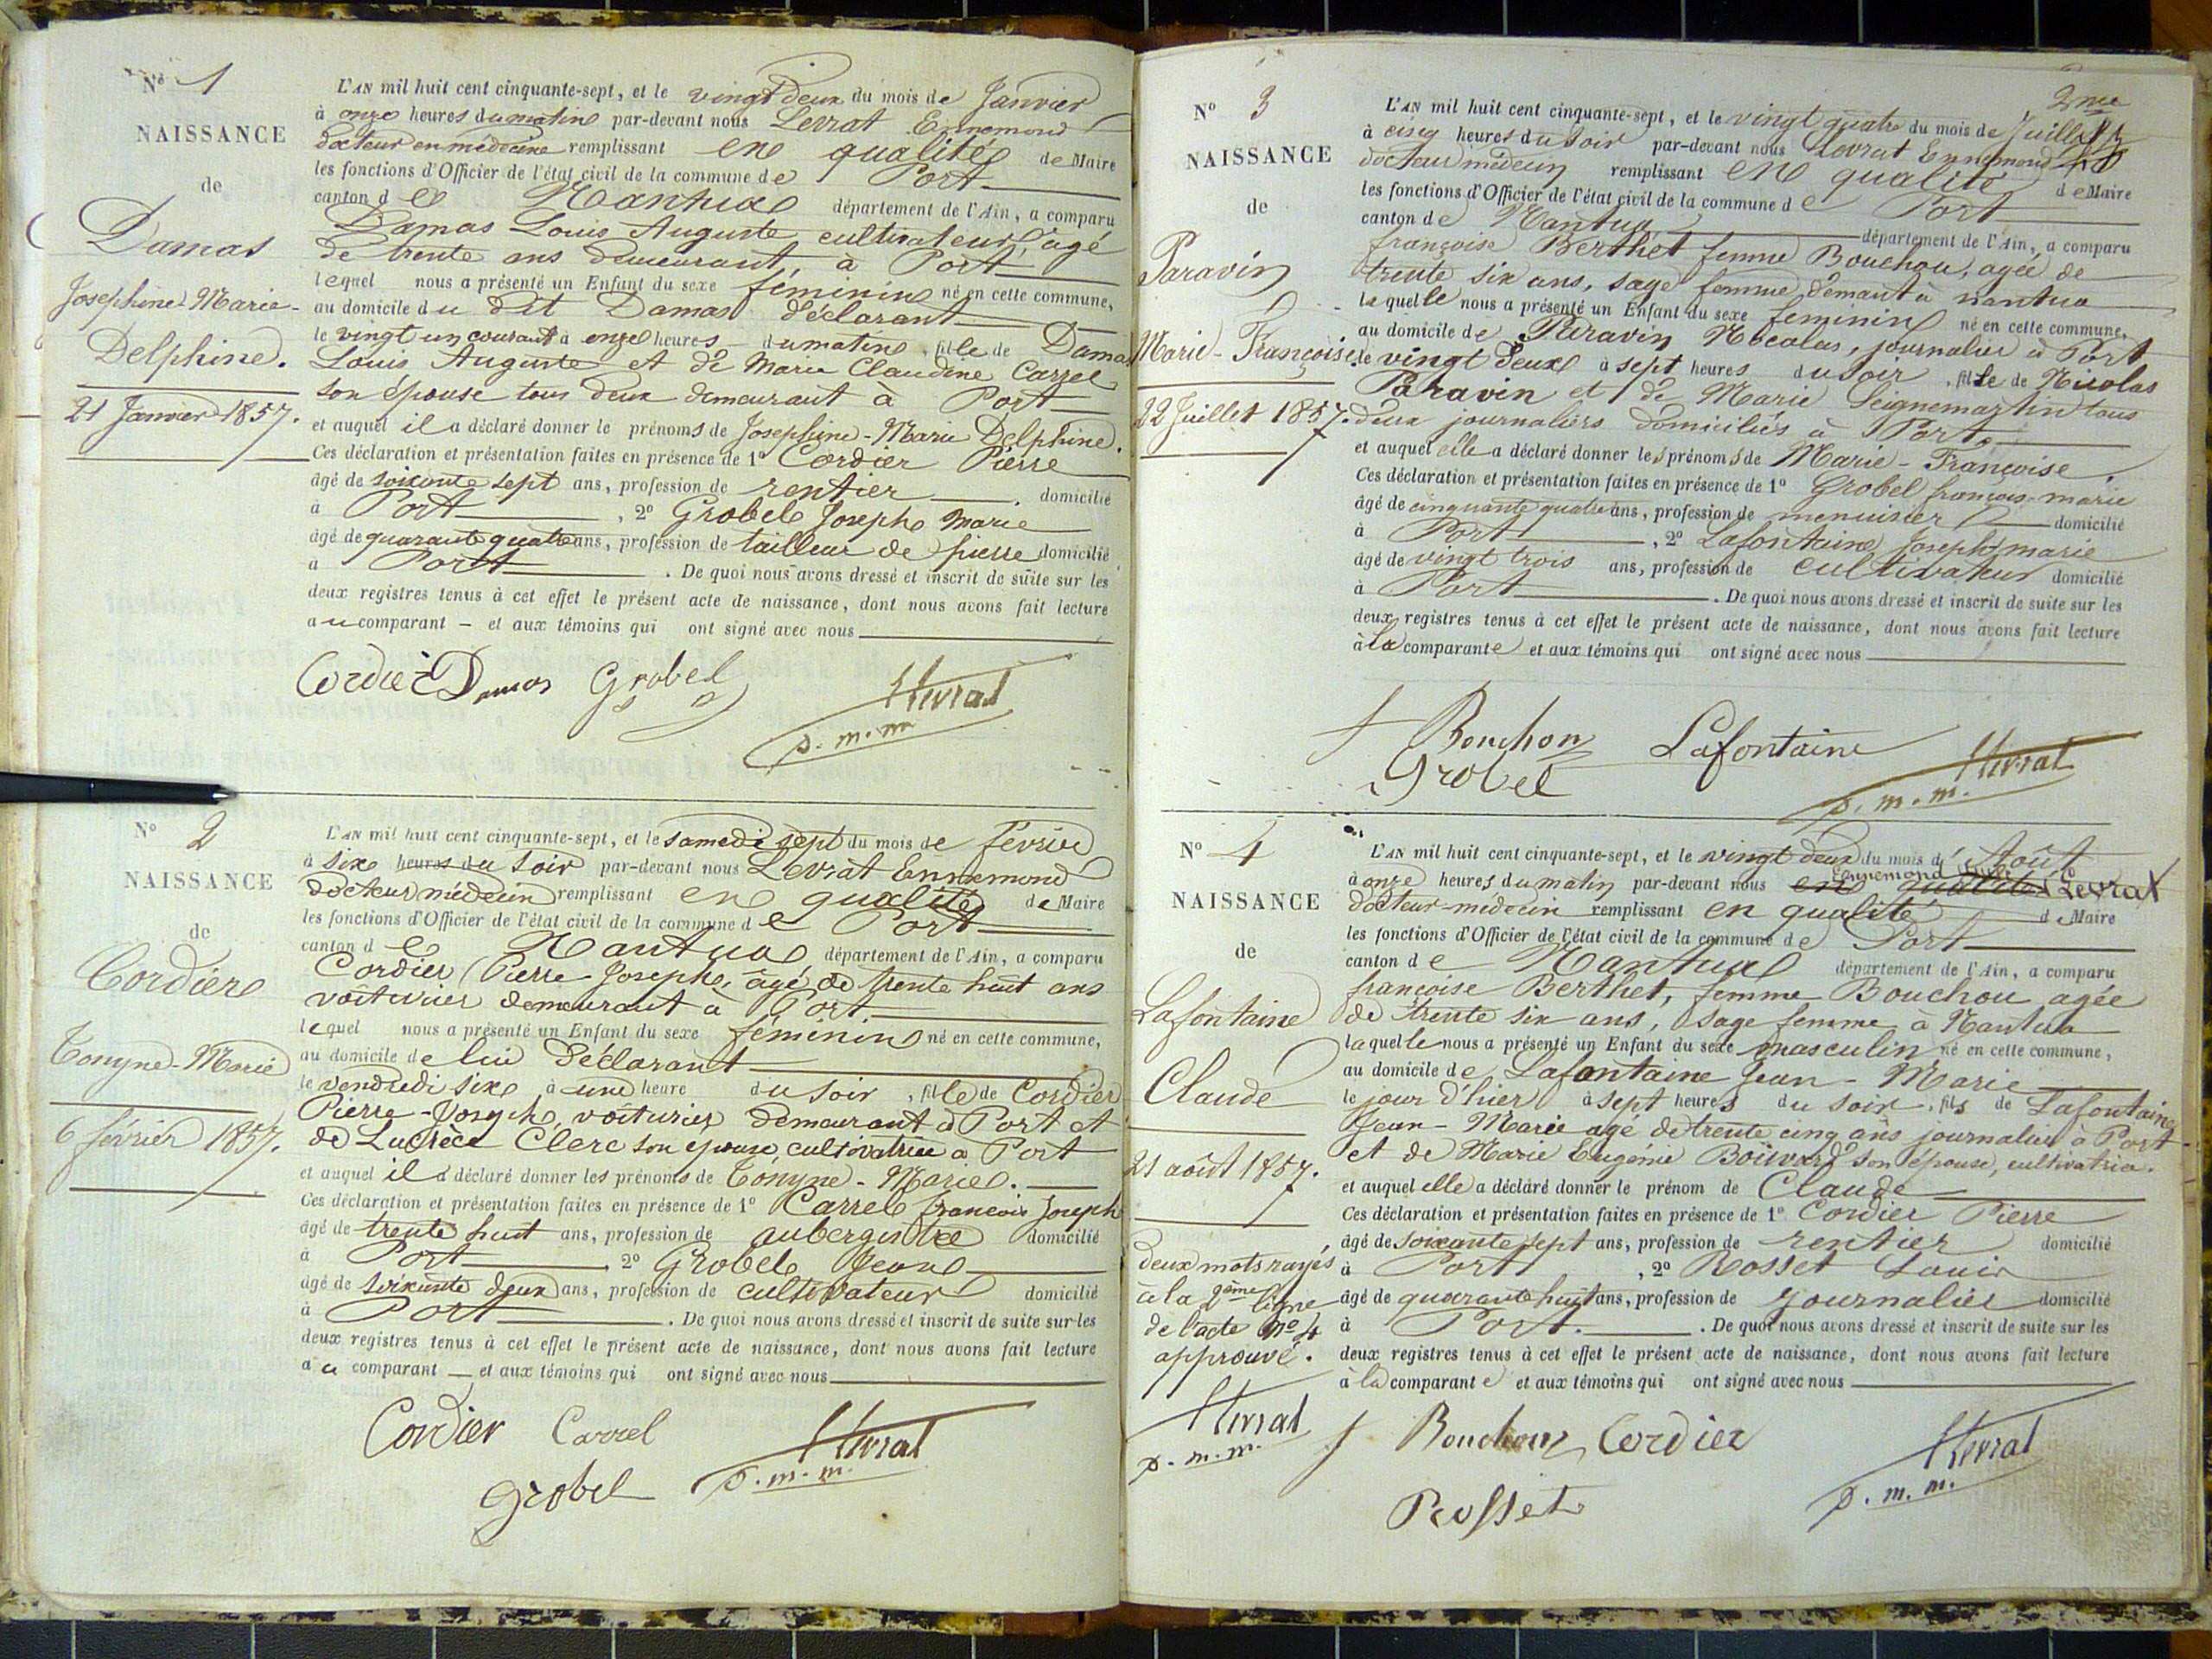 N° 1
NAISSANCE
de
Damas
Joséphine-Marie-
Delphine.
21 Janvier 1857.
L'AN mil huit cent cinquante-sept, et le vingt deux du mois de Janvier
à onze heures du matin par-devant nous Levrat Ennemond
docteur en médecine remplissant en qualité de Maire
les fonctions d'Officier de l'état civil de la commune de Port
canton de Nantua département de l'Ain, a comparu
Damas Louis Auguste cultivateur âgé
de trente ans demeurant à Port
lequel nous a présenté un Enfant du sexe féminin né en cette commune,
au domicile du dit Damas déclarant
le vingt un courant à onze heures du matin, fille de Damas
Louis Auguste et de Marie Claudine Carrel
son épouse tous deux demeurant à Port
et auquel il a déclaré donner le prénoms de Joséphine-Marie Delphine.
Ces déclaration et présentation faites en présence de 1° Cordier Pierre
âgé de soixante sept ans, profession de rentier domicilié
à Port, 2° Grobel Joseph Marie
âgé de quarante quatre ans, profession de tailleur de pierre domicilié
à Port. De quoi nous avons dressé et inscrit de suite sur les
deux registres tenus à cet effet le présent acte de naissance, dont nous avons fait lecture
au comparant – et aux témoins qui ont signé avec nous
Cordier Damas Grobel
Levrat
d. m. m.
N° 2
NAISSANCE
de
Cordier
Tonyne-Marie
6 février 1857.
L'AN mil huit cent cinquante-sept, et le samedi sept du mois de février
à six heures du soir par-devant nous Levrat Ennemond
docteur médecin remplissant en qualité de Maire
les fonctions d'Officier de l'état civil de la commune de Port
canton de Nantua département de l'Ain, a comparu
Cordier Pierre-Joseph, âgé de trente huit ans
voiturier demeurant à Port
lequel nous a présenté un Enfant du sexe féminin né en cette commune,
au domicile de lui déclarant
le vendredi six à une heure du soir, fille de Cordier
Pierre-Joseph, voiturier demeurant à Port et
de Lucrèce Clerc son épouse, cultivatrice à Port
et auquel il a déclaré donner les prénoms de Tonyne-Marie.
Ces déclaration et présentation faites en présence de 1° Carrel françois Joseph
âgé de trente huit ans, profession de aubergiste domicilié
à Port 2° Grobel Jean
âgé de soixante deux ans, profession de cultivateur domicilié
à Port. De quoi nous avons dressé et inscrit de suite sur les
deux registres tenus à cet effet le présent acte de naissance, dont nous avons fait lecture
au comparant — et aux témoins qui ont signé avec nous
Cordier Carrel
Levrat
d. m. m.
Grobel
2me
N° 3
NAISSANCE
de
Paravin
Marie-Françoise.
22 Juillet 1857.
L'AN mil huit cent cinquante-sept, et le vingt quatre du mois de Juillet
à cinq heures du soir par-devant nous Levrat Ennemond
docteur médecin remplissant en qualité de Maire
les fonctions d'Officier de l'état civil de la commune de Port
canton de Nantua département de l'Ain, a comparu
françoise Berthet femme Bouchon, agée de
trente six ans, sage femme demant à nantua
laquelle nous a présenté un Enfant du sexe feminin né en cette commune,
au domicile de Paravin Nicolas, journalier à Port
le vingt deux à sept heures du soir, fille de Nicolas
Paravin et de Marie Seignemartin tous
deux journaliers domiciliés à Port.
et auquel elle a déclaré donner les prénoms de Marie-Françoise.
Ces déclaration et présentation faites en présence de 1° Grobel françois-marie
âgé de cinquante quatre ans, profession de menuisier domicilié
à Port, 2° Lafontaine Joseph marie
âgé de vingt trois ans, profession de cultivateur domicilié
à Port. De quoi nous avons dressé et inscrit de suite sur les
deux registres tenus à cet effet le présent acte de naissance, dont nous avons fait lecture
à la comparante et aux témoins qui ont signé avec nous
f Bouchon Lafontaine
Grobel
Levrat
d. m. m.
N° 4
NAISSANCE
de
Lafontaine
Claude
21 août 1857.
deux mots rayés
à la 2ème ligne
de l'acte N° 4
approuvé.
Levrat
d. m. m.
L'AN mil huit cent cinquante-sept, et le vingt deux du mois d'Août
à onze heures du matin par-devant nous en qualité Ennemond Levrat
docteur-médecin remplissant en qualité de Maire
les fonctions d'Officier de l'état civil de la commune de Port
canton de Nantua département de l'Ain, a comparu
françoise Berthet, femme Bouchon agée
de trente six ans, sage femme à Nantua
laquelle nous a présenté un Enfant du sexe masculin né en cette commune,
au domicile de Lafontaine Jean-Marie
le jour d'hier à sept heures du soir, fils de Lafontaine
Jean-Marie agé de trente cinq ans journalier à Port
et de Marie Eugénie Boisvard son épouse, cultivatrice.
et auquel elle a déclaré donner le prénom de Claude
Ces déclaration et présentation faites en présence de 1° Cordier Pierre
âgé de soixante sept ans, profession de rentier domicilié
à Port, 2° Rosset Louis
âgé de quarante huit ans, profession de journalier domicilié
à Port. De quoi nous avons dressé et inscrit de suite sur les
deux registres tenus à cet effet le présent acte de naissance, dont nous avons fait lecture
à la comparante et aux témoins qui ont signé avec nous
f Bouchon Cordier
Levrat
d. m. m.
Rosset